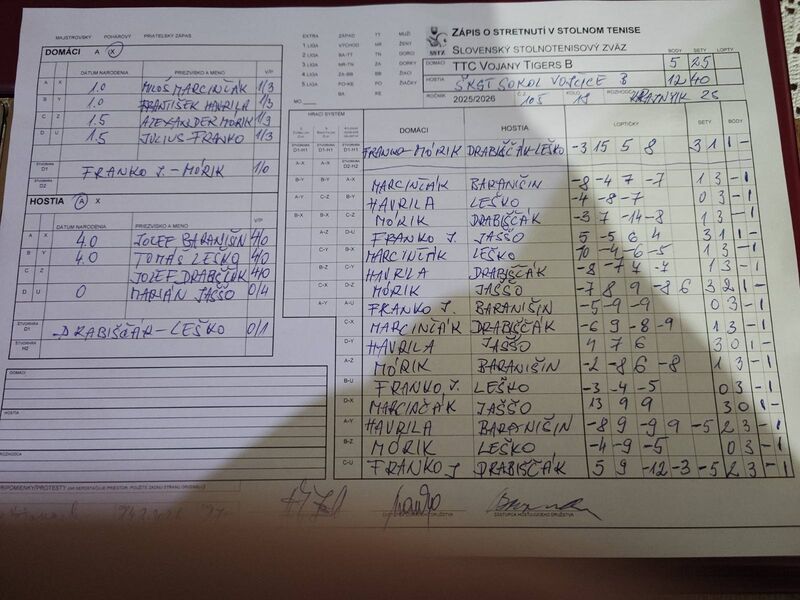 MAJSTROVSKÝ POHÁROVÝ PRIATEĽSKÝ ZÁPAS
DOMÁCI A X
DÁTUM NARODENIA PRIEZVISKO A MENO V/P
A X 1.0 MILOŠ MARCINČÁK 1/3
B Y 1.0 FRANTIŠEK HAVRILA 1/3
C Z 1.5 ALEXANDER MÓRIK 1/3
D U 1.5 JÚLIUS FRANKO 1/3
ŠTVORHRA D1
D2 FRANKO J. - MÓRIK 1/0
HOSTIA A X
DÁTUM NARODENIA PRIEZVISKO A MENO V/P
A X 4.0 JOZEF BARANIŠIN 4/0
B Y 4.0 TOMÁŠ LEŠKO 4/0
C Z JOZEF DRABIŠČÁK 4/0
D U 0 MARIÁN JAŠŠO 0/4
ŠTVORHRA D1 DRABIŠČÁK - LEŠKO 0/1
ŠTVORHRA H2
DOMÁCI
HOSTIA
ROZHODCA
PRIPOMIENKY/PROTESTY
EXTRA ZÁPAD TT MUŽI
1 LIGA VÝCHOD NR ŽENY
2 LIGA BA-TT TN DORCI
3 LIGA NR-TN ZA DORKY
4 LIGA ZA-BB BB ŽIACI
5 LIGA PO-KE PO ŽIAČKY
BA KE
MO
SSTZ
ZÁPIS O STRETNUTÍ V STOLNOM TENISE
SLOVENSKÝ STOLNOTENISOVÝ ZVÄZ
BODY SETY LOPTY
DOMÁCI TTC VOJANY TIGERS B 5 25
HOSTIA ŠKST SOKOL VOJČICE B 12 40
ROČNÍK 2025/2026 105 KOLO 19
HRACÍ SYSTÉM
DOMÁCI HOSTIA LOPTIČKY SETY BODY
D1-H1 D1-H1 D1-H1 FRANKO-MÓRIK DRABIŠČÁK-LEŠKO -3 15 5 8 3 1 1 -
A-X A-X D2-H2
B-Y B-Y A-X MARCINČÁK BARANIŠIN -8 -4 7 -7 1 3 - 1
A-Y C-Z B-Y HAVRILA LEŠKO -4 -8 -7 0 3 - 1
B-X B-X C-Z MÓRIK DRABIŠČÁK -3 7 -14 -8 1 3 - 1
A-Z D-U FRANKO J. JAŠŠO 5 -5 6 4 3 1 1 -
C-Y B-X MARCINČÁK LEŠKO 10 -4 -6 -5 1 3 - 1
B-Z C-Y HAVRILA DRABIŠČÁK -8 -7 7 -7 1 3 - 1
C-X D-Z MÓRIK JAŠŠO -7 8 9 -8 6 3 2 1 -
A-Y A-U FRANKO J. BARANIŠIN -5 -9 -9 0 3 - 1
C-X MARCINČÁK DRABIŠČÁK -6 9 -8 -9 1 3 - 1
D-Y HAVRILA JAŠŠO 4 7 6 3 0 1 -
A-Z MÓRIK BARANIŠIN -2 -8 6 -8 1 3 - 1
B-U FRANKO J. LEŠKO -3 -4 -5 0 3 - 1
D-X MARCINČÁK JAŠŠO 13 9 9 3 0 1 -
A-Y HAVRILA BARANIŠIN -8 9 -9 9 -5 2 3 - 1
B-Z MÓRIK LEŠKO -4 -9 -5 0 3 - 1
C-U FRANKO J DRABIŠČÁK 5 9 -12 -3 -5 2 3 - 1